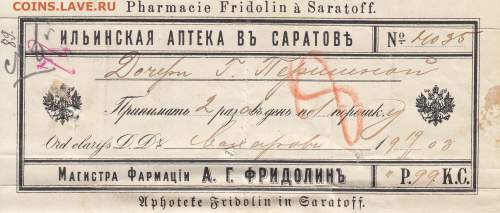 СОИНS.LAVE.RU
Pharmacie Fridolin à Saratoff.
ИЛЬИНСКАЯ АПТЕКА ВЪ САРАТОВѢ
№ 4035
89
Дочери Г. Першиной
Принимать 2 разовъ день по 1 порошку
Ord clariss D. Dr Захаровъ 19 03
МАГИСТРА ФАРМАЦІИ А. Г. ФРИДОЛИНЪ
Р. 99 К.С.
Aphoteke Fridolin in Saratoff.